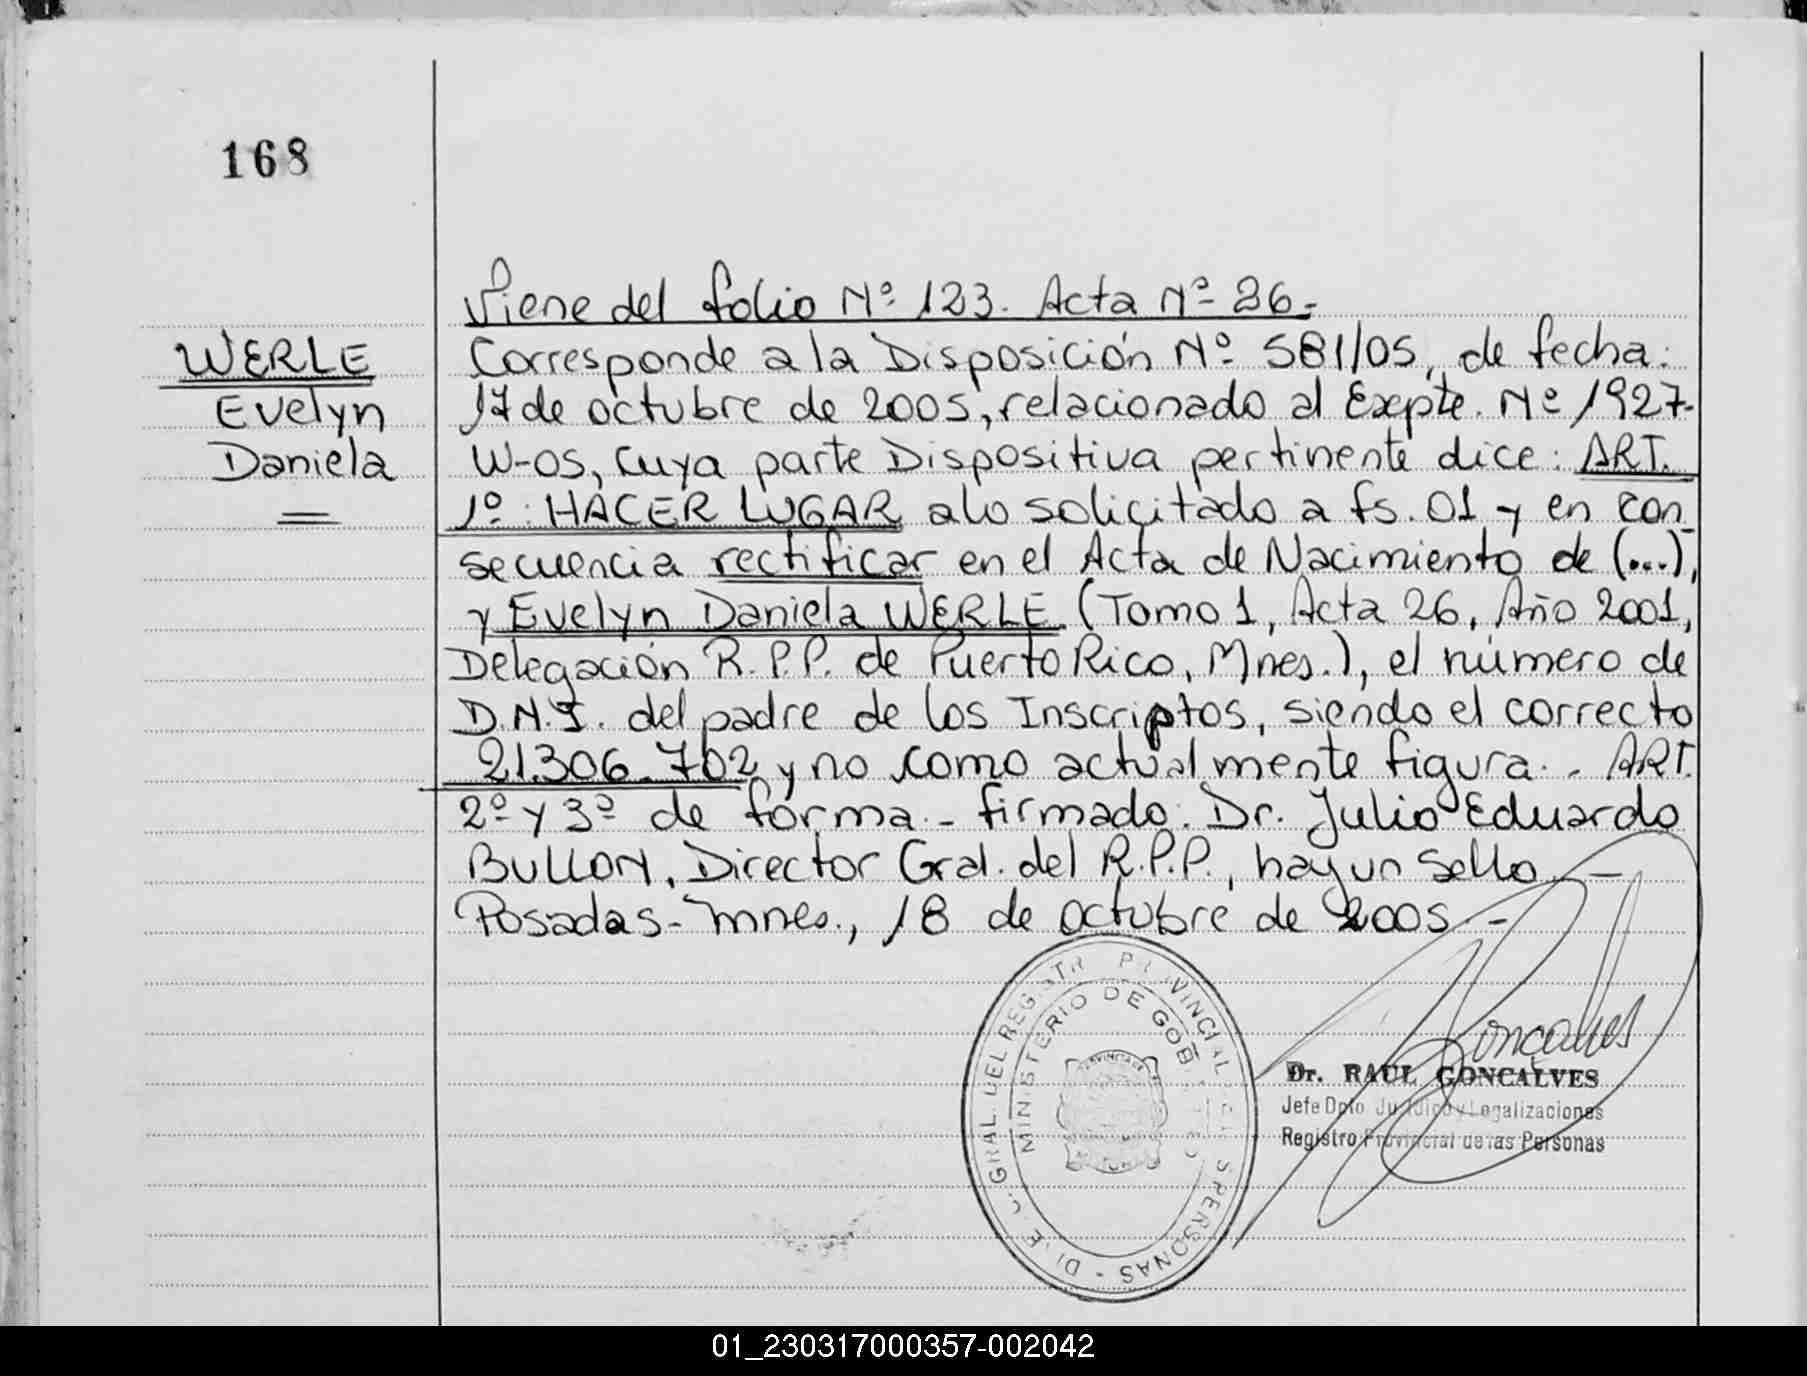 168
Viene del folio Nº 123. Acta Nº 26.-
WERLE
Evelyn
Daniela
Corresponde a la Disposición Nº 581/05, de fecha:
17 de octubre de 2005, relacionado al Expte. Nº 1927-
W-05, cuya parte Dispositiva pertinente dice: ART.
1º: HACER LUGAR a lo solicitado a fs. 01 y en con
secuencia rectificar en el Acta de Nacimiento de (...),
y Evelyn Daniela WERLE (Tomo 1, Acta 26, Año 2001,
Delegación R.P.P. de Puerto Rico, Mnes.), el número de
D.N.I. del padre de los Inscriptos, siendo el correcto
21.306.702 y no como actualmente figura.- ART.
2º y 3º de forma.- firmado: Dr. Julio Eduardo
BULLON, Director Gral. del R.P.P., hay un sello.-
Posadas-Mnes., 18 de octubre de 2005.-
GRAL. DEL REGISTR PROVINCIAL PERSONAS
MINISTERIO DE GOB
Goncalves
Dr. RAUL GONCALVES
Jefe Dpto Jurídico y Legalizaciones
Registro Provincial de las Personas
01_230317000357-002042